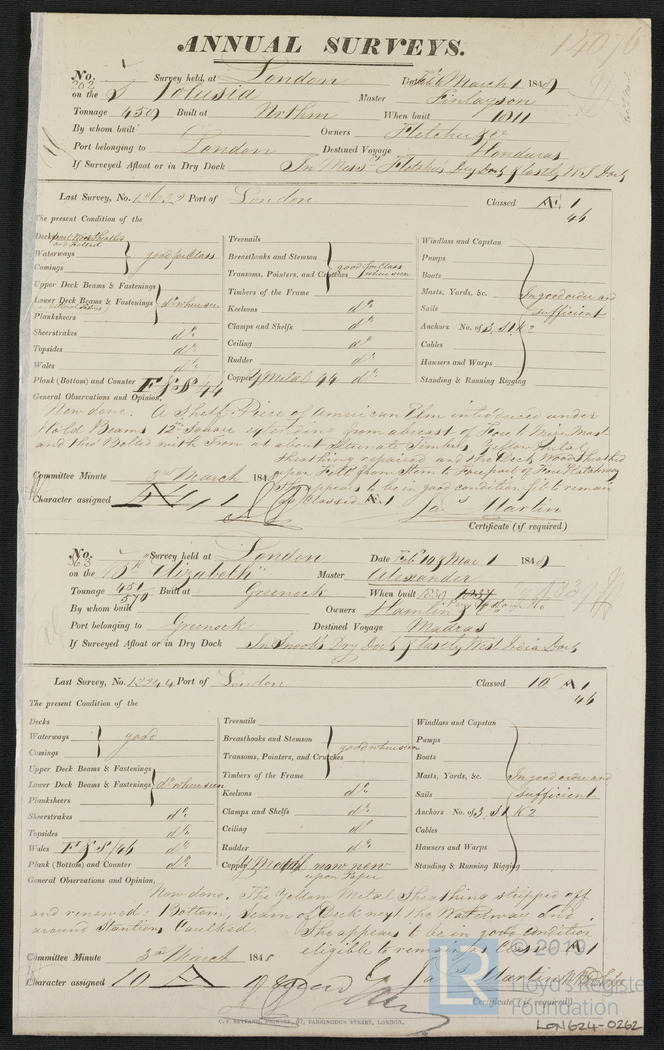 14076
ANNUAL SURVEYS.
No. 262 Survey held at London Date Feb 6 March 1 1848
on the S Volusia Master Finlayson
Tonnage 459 Built at Nrthm When built 1811
By whom built Owners Fletcher & Co
Port belonging to London Destined Voyage Honduras
If Surveyed Afloat or in Dry Dock In Messrs Fletcher's Dry Dock & lastly W.I. Dock
Last Survey, No. 12632 Port of London Classed Æ 1
46
The present Condition of the
Decks part Wood Sheathed and Felted
Waterways good for Class
Comings
Upper Deck Beams & Fastenings
Lower Deck Beams & Fastenings do where seen
Planksheers
Sheerstrakes do
Topsides do
Wales do
Plank (Bottom) and Counter F & S 44
Treenails
Breasthooks and Stemson good for Class
Transoms, Pointers, and Crutches where seen
Timbers of the Frame
Keelsons do
Clamps and Shelfs do
Ceiling do
Rudder do
Copper Y Metal 44 do
Windlass and Capstan
Pumps
Boats
Masts, Yards, &c. In good order and
Sails sufficient
Anchors No. of 3, S1, K2
Cables
Hawsers and Warps
Standing & Running Rigging
General Observations and Opinion,
Now done. A Shelf Piece of American Elm introduced under
Hold Beams 12 In Square extending from abreast of Fore to Mizen Mast
and this Bolted with Iron at about alternate Timbers
Sheathing repaired and the Deck Wood Sheathed
upon Felt from Stem to Forepart of Fore Hatchway
She appears to be in good condition fit to remain
as Classed Æ 1
Committee Minute 3rd March 1848
Character assigned Æ 1
Jas Martin
Certificate (if required)
No. 263 Survey held at London Date Feb 10 & Mar 1 1848
on the Bk "Elizabeth" Master Alexander
Tonnage 451/570 Built at Greenock When built
By whom built Owners Hamlin & Co
Port belonging to Greenock Destined Voyage Madras
If Surveyed Afloat or in Dry Dock In Snook's Dry Dock & lastly West India Dock
Last Survey, No. 12244 Port of London Classed 10 A 1
46
The present Condition of the
Decks
Waterways good
Comings
Upper Deck Beams & Fastenings
Lower Deck Beams & Fastenings do where seen
Planksheers
Sheerstrakes do
Topsides do
Wales F & S /46 do
Plank (Bottom) and Counter do
Treenails
Breasthooks and Stemson
Transoms, Pointers, and Crutches good where seen
Timbers of the Frame
Keelsons do
Clamps and Shelfs do
Ceiling do
Rudder do
Copper Y Metal now new
upon Paper
Windlass and Capstan
Pumps
Boats
Masts, Yards, &c. In good order and
Sails sufficient
Anchors No. of 3, S1, K2
Cables
Hawsers and Warps
Standing & Running Rigging
General Observations and Opinion,
Now done. The Yellow Metal Sheathing stripped off
and renewed; Bottom, Seam of Deck next the Waterway and
around Stantions Caulked. She appears to be in good condition
eligible to remain as Classed A 1
Committee Minute 3rd March 1848
Character assigned 10 A
Jas Martin
Certificate (if required)
C. F. SEYFANG, PRINTER, 57, FARRINGDON STREET, LONDON.
LR
© 2019
Lloyd's Register
Foundation
LON624-0262